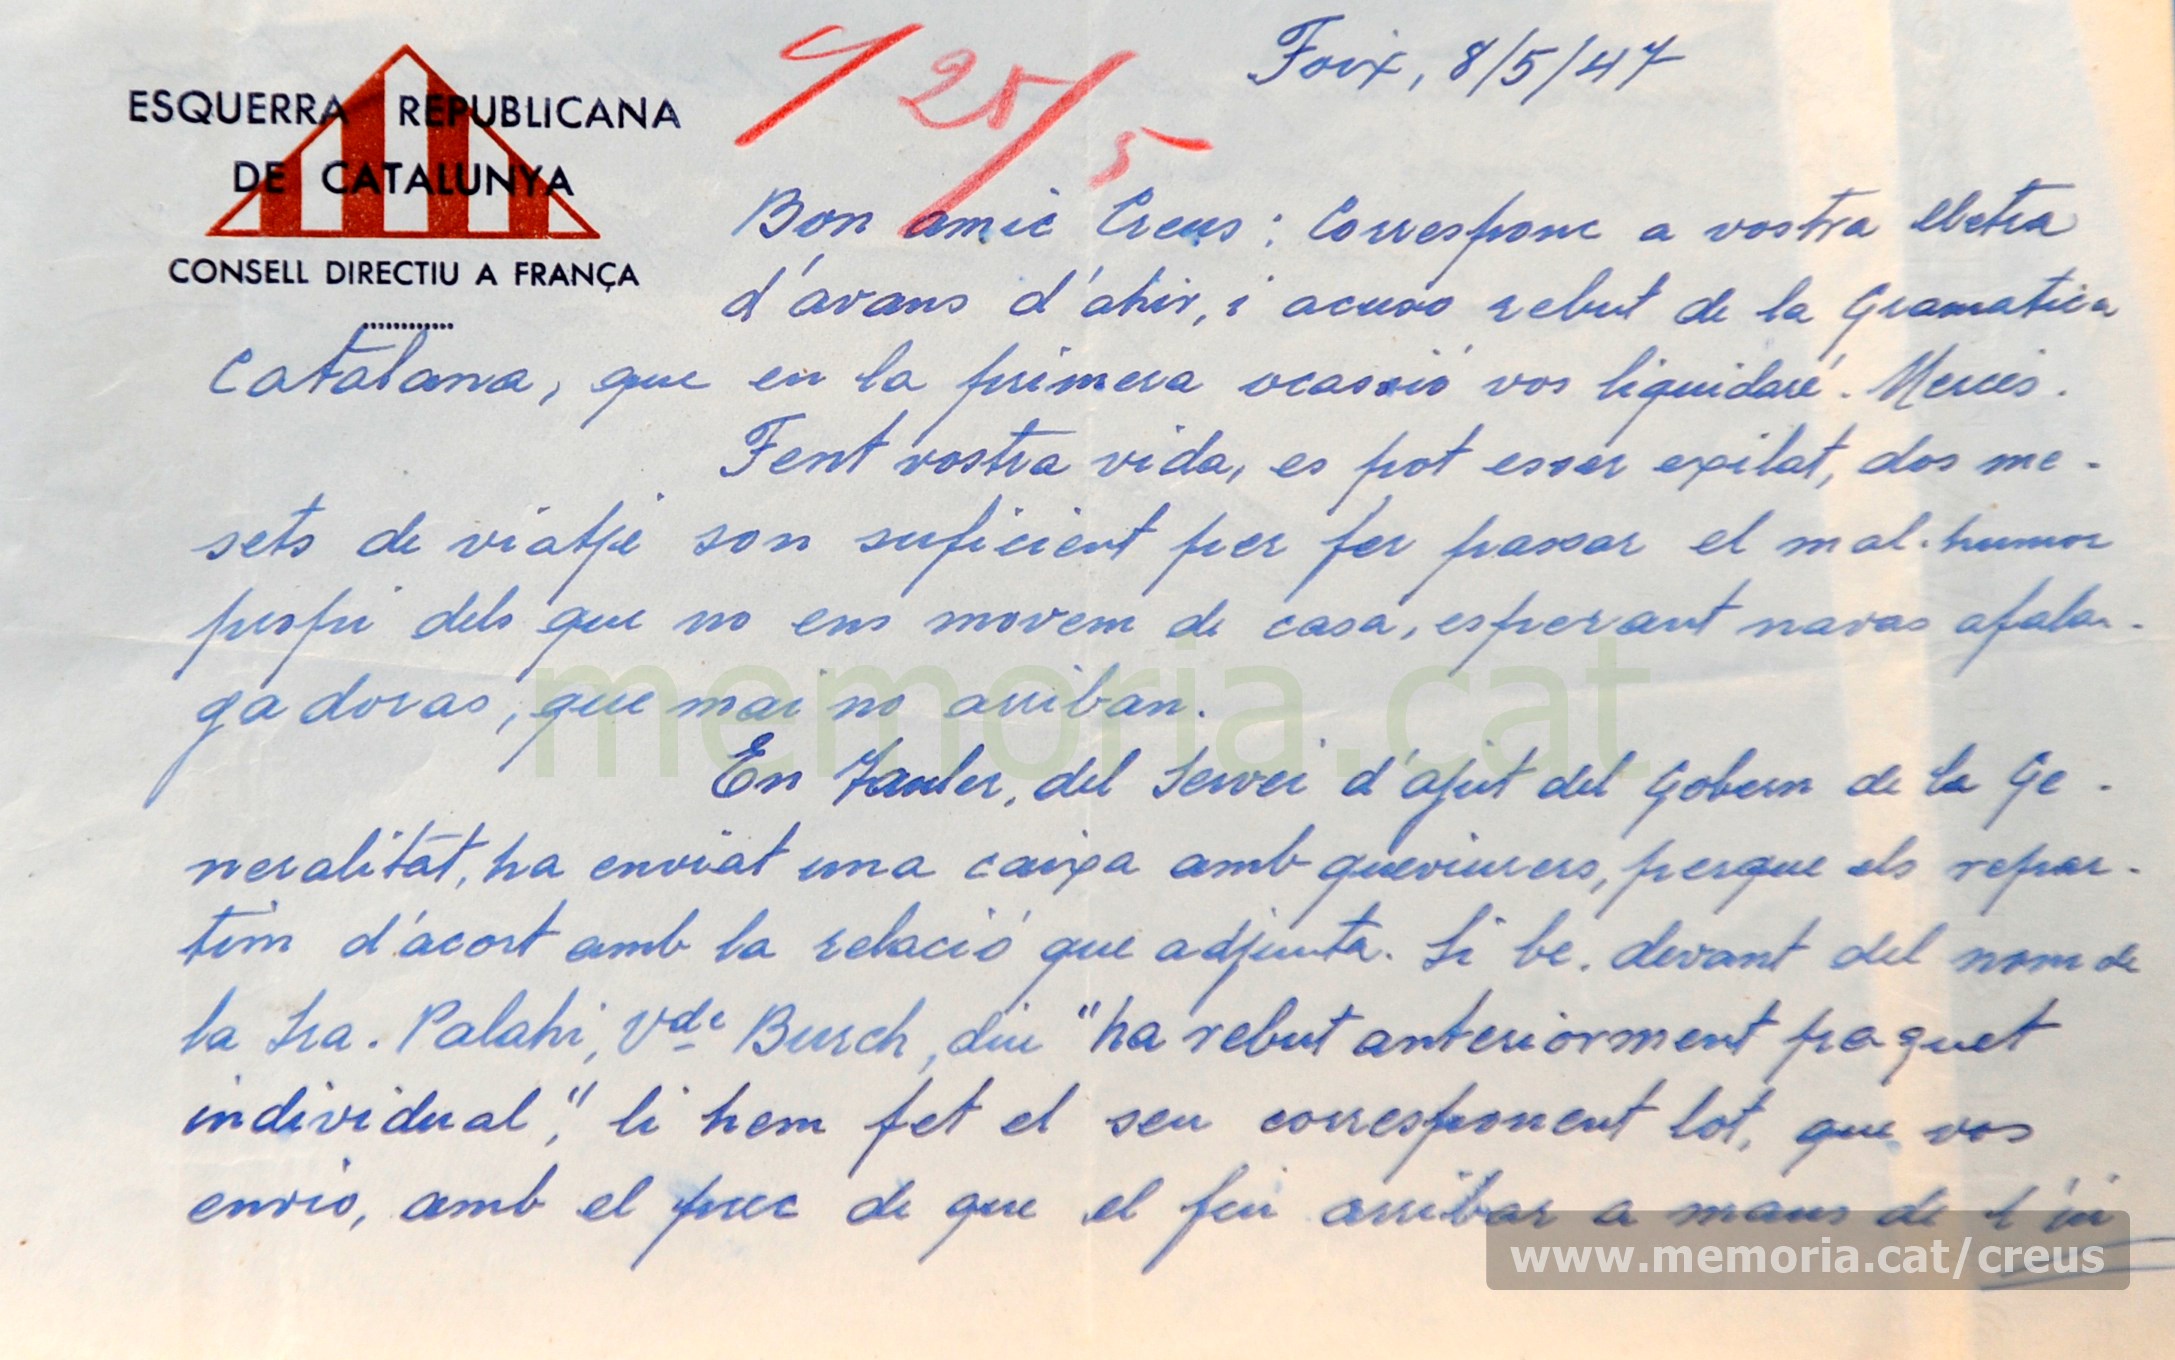 ESQUERRA REPUBLICANA
DE CATALUNYA
CONSELL DIRECTIU A FRANÇA
25/5
Foix, 8/5/47
Bon amic Creus: Corresponc a vostra lletra
d'avans d'ahir, i acuso rebut de la Gramatica
Catalana, que en la primera ocassió vos liquidaré. Mercés.
Fent vostra vida, es pot esser exilat, dos me-
sets de viatje son suficient per fer passar el mal-humor
propi dels que no ens movem de casa, esperant novas afala-
gadoras, que mai no arriban.
En Tauler, del Servei d'ajut del Gobern de la Ge-
neralitat, ha enviat una caixa amb queviures, perque els repar-
tim d'acort amb la relació que adjunta. Si be, devant del nom de
la Sra. Palahi, Vde Burch, diu "ha rebut anteriorment paquet
individual", li hem fet el seu corresponent lot, que vos
envio, amb el prec de que el feu arribar a mans de l'in
memoria.cat
www.memoria.cat/creus